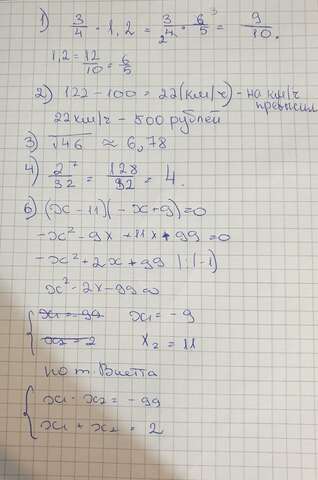 1) 3/4 · 1,2 = 3/4 2 · 6 3/5 = 9/10.
1,2 = 12/10 = 6/5
2) 122 - 100 = 22 (км/ч) - на км/ч превысил
22 км/ч - 500 рублей
3) √46 ≈ 6,78
4) 2⁷/32 = 128/32 = 4.
6) (x - 11)(-x + 9) = 0
-x² - 9x + 11x + 99 = 0
-x² + 2x + 99 | : (-1)
x² - 2x - 99 = 0
x1 = -99 x1 = -9
x2 = 2 x2 = 11
по т. Виетта
x1 · x2 = -99
x1 + x2 = 2